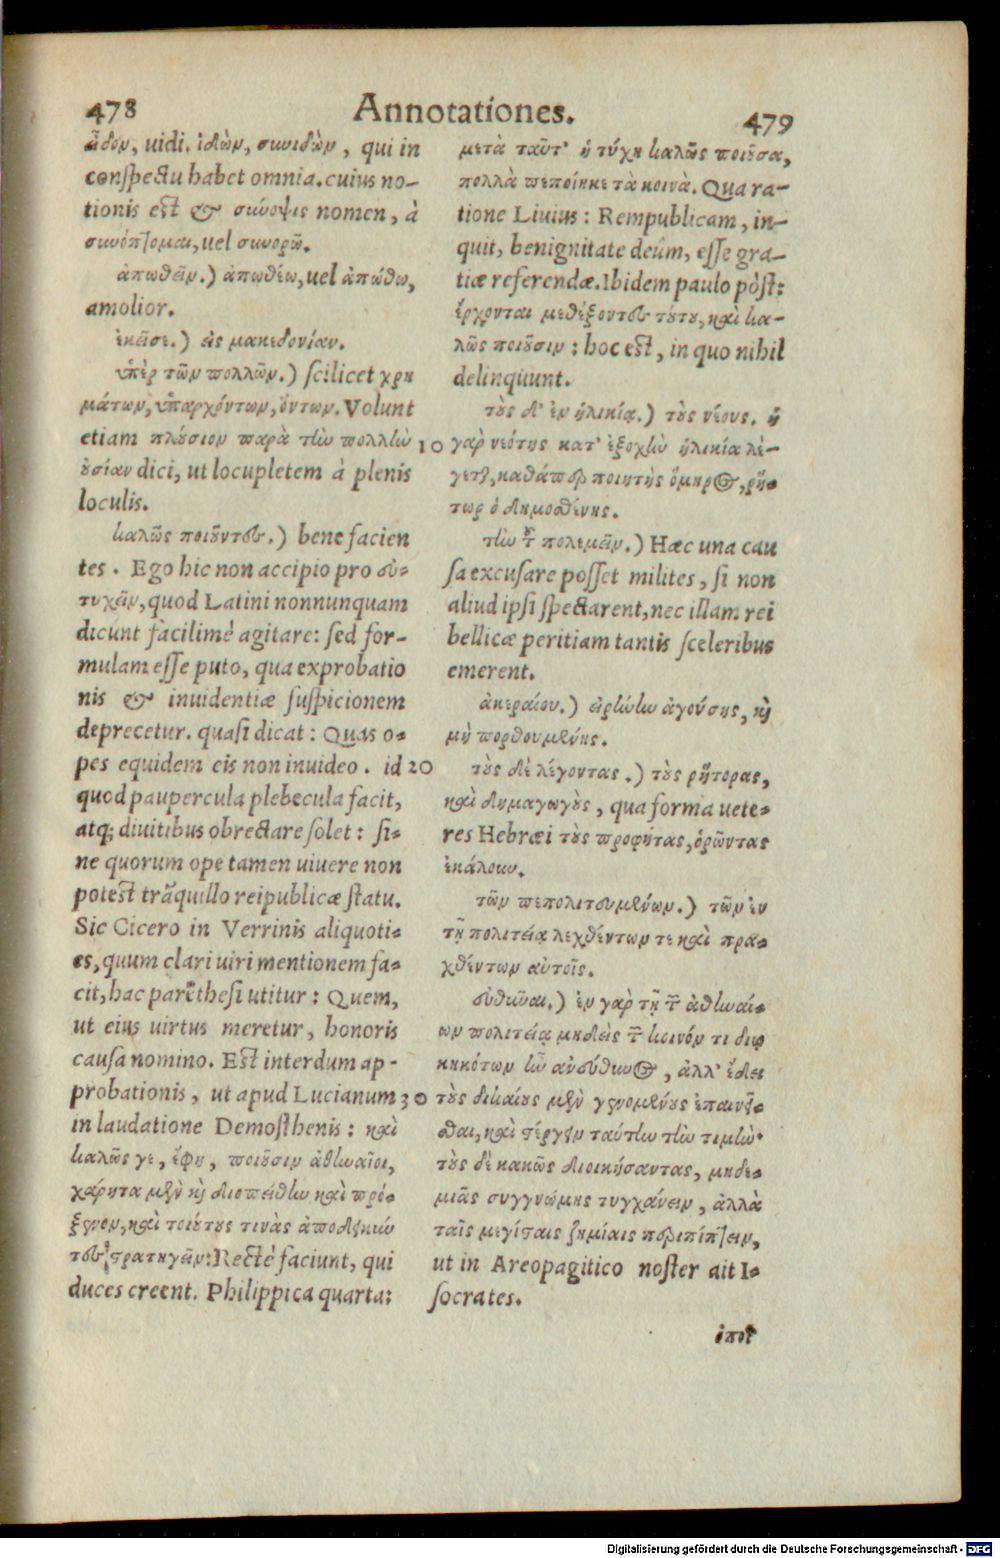 478
Annotationes.
479
εἶδον, uidi. ἰδὼν, συνιδὼν, qui in
conſpectu habet omnia. cuius no-
tionis est & σύνοψις nomen, à
συνόπτομαι, uel συνορῶ.
ἀπωθεῖν.) ἀπωθέω, uel ἀπώθω,
amolior.
ἐκεῖσε.) εἰς μακεδονίαν.
ὑπὲρ τῶν πολλῶν.) ſcilicet χρη
μάτων, ὑπαρχόντων, ὄντων. Volunt
etiam πλούσιον παρὰ τὴν πολλὴν
οὐσίαν dici, ut locupletem à plenis
loculis.
καλῶς ποιοῦντες.) bene facien
tes. Ego hic non accipio pro εὐ-
τυχεῖν, quod Latini nonnunquam
dicunt facilimè agitare: ſed for-
mulam eſſe puto, qua exprobatio
nis & inuidentiæ ſuſpicionem
deprecetur. quaſi dicat: Quas o-
pes equidem eis non inuideo. id
quod paupercula plebecula facit,
atq; diuitibus obrectare ſolet: ſi-
ne quorum ope tamen uiuere non
poteſt trãquillo reipublicæ ſtatu.
Sic Cicero in Verrinis aliquoti-
es, quum clari uiri mentionem fa-
cit, hac parētheſi utitur: Quem,
ut eius uirtus meretur, honoris
cauſa nomino. Eſt interdum ap-
probationis, ut apud Lucianum
in laudatione Demoſthenis: καὶ
καλῶς γε, ἔφη, ποιοῦσιν ἀθηναῖοι,
χάρητα μὲν καὶ διοπείθην καὶ πρό-
ξενον, καὶ τοιούτους τινὰς ἀποδεικνύν
τες στρατηγεῖν: Rectè faciunt, qui
duces creent. Philippica quarta:
10
20
30
μετὰ ταῦτ' ἡ τύχη καλῶς ποιοῦσα,
πολλὰ πεποίηκε τὰ κοινὰ. Qua ra-
tione Liuius: Rempublicam, in-
quit, benignitate deûm, eſſe gra-
tiæ referendæ. Ibidem paulo pòſt:
ἔρχονται μεθέξοντες τούτου, καὶ κα-
λῶς ποιοῦσιν: hoc eſt, in quo nihil
delinquunt.
τοὺς δ' ἐν ἡλικίᾳ.) τοὺς νέους. ἡ
γὰρ νεότης κατ' ἐξοχὴν ἡλικία λέ-
γεται, καθάπερ ποιητὴς ὅμηρος, ῥή-
τωρ ὁ δημοσθένης.
τὴν τοῦ πολεμεῖν.) Hæc una cau
ſa excuſare poſſet milites, ſi non
aliud ipſi ſpectarent, nec illam rei
bellicæ peritiam tantis ſceleribus
emerent.
ἀκεραίου.) εἰρήνην ἀγούσης, καὶ
μὴ πορθουμένης.
τοὺς δὲ λέγοντας.) τοὺς ῥήτορας,
καὶ δημαγωγοὺς, qua forma uete-
res Hebræi τοὺς προφήτας, ὁρῶντας
ἐκάλουν.
τῶν πεπολιτευμένων.) τῶν ἐν
τῇ πολιτείᾳ λεχθέντων τε καὶ πρα-
χθέντων αὐτοῖς.
εὐθῦναι.) ἐν γὰρ τῇ τῶν ἀθηναί-
ων πολιτείᾳ μηδεὶς τῶν κοινόν τι διῳ
κηκότων ἦν ἀνεύθυνος, ἀλλ' ἔδει
τοὺς δικαίους μὲν γενομένους ἐπαινεῖ-
σθαι, καὶ στέργειν ταύτην τὴν τιμὴν·
τοὺς δὲ κακῶς διοικήσαντας, μηδε-
μιᾶς συγγνώμης τυγχάνειν, ἀλλὰ
ταῖς μεγίσταις ζημίαις περιπίπτειν,
ut in Areopagitico noſter ait I-
ſocrates.
Digitalisierung gefördert durch die Deutsche Forschungsgemeinschaft - DFG